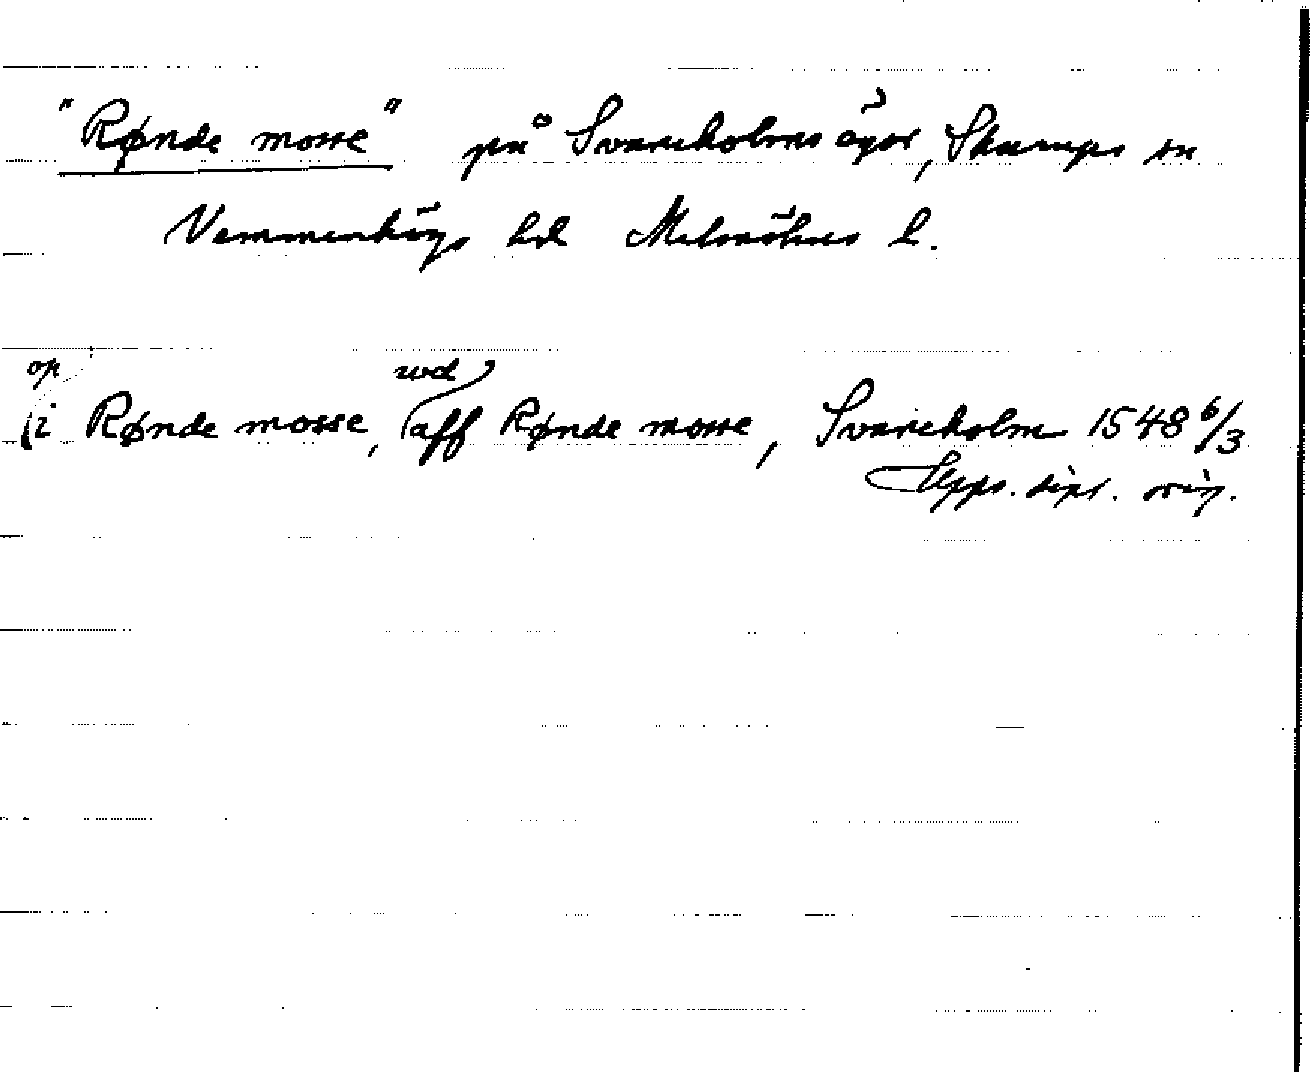 "Rønde mosse" på Svaneholms ägor, Skurups sn
Vemmenhögs hd Malmöhus l.
op wd
(i Rønde mosse, (aff Rønde mosse, Svaneholm 1548 6/3
Upps. dipl. orig.